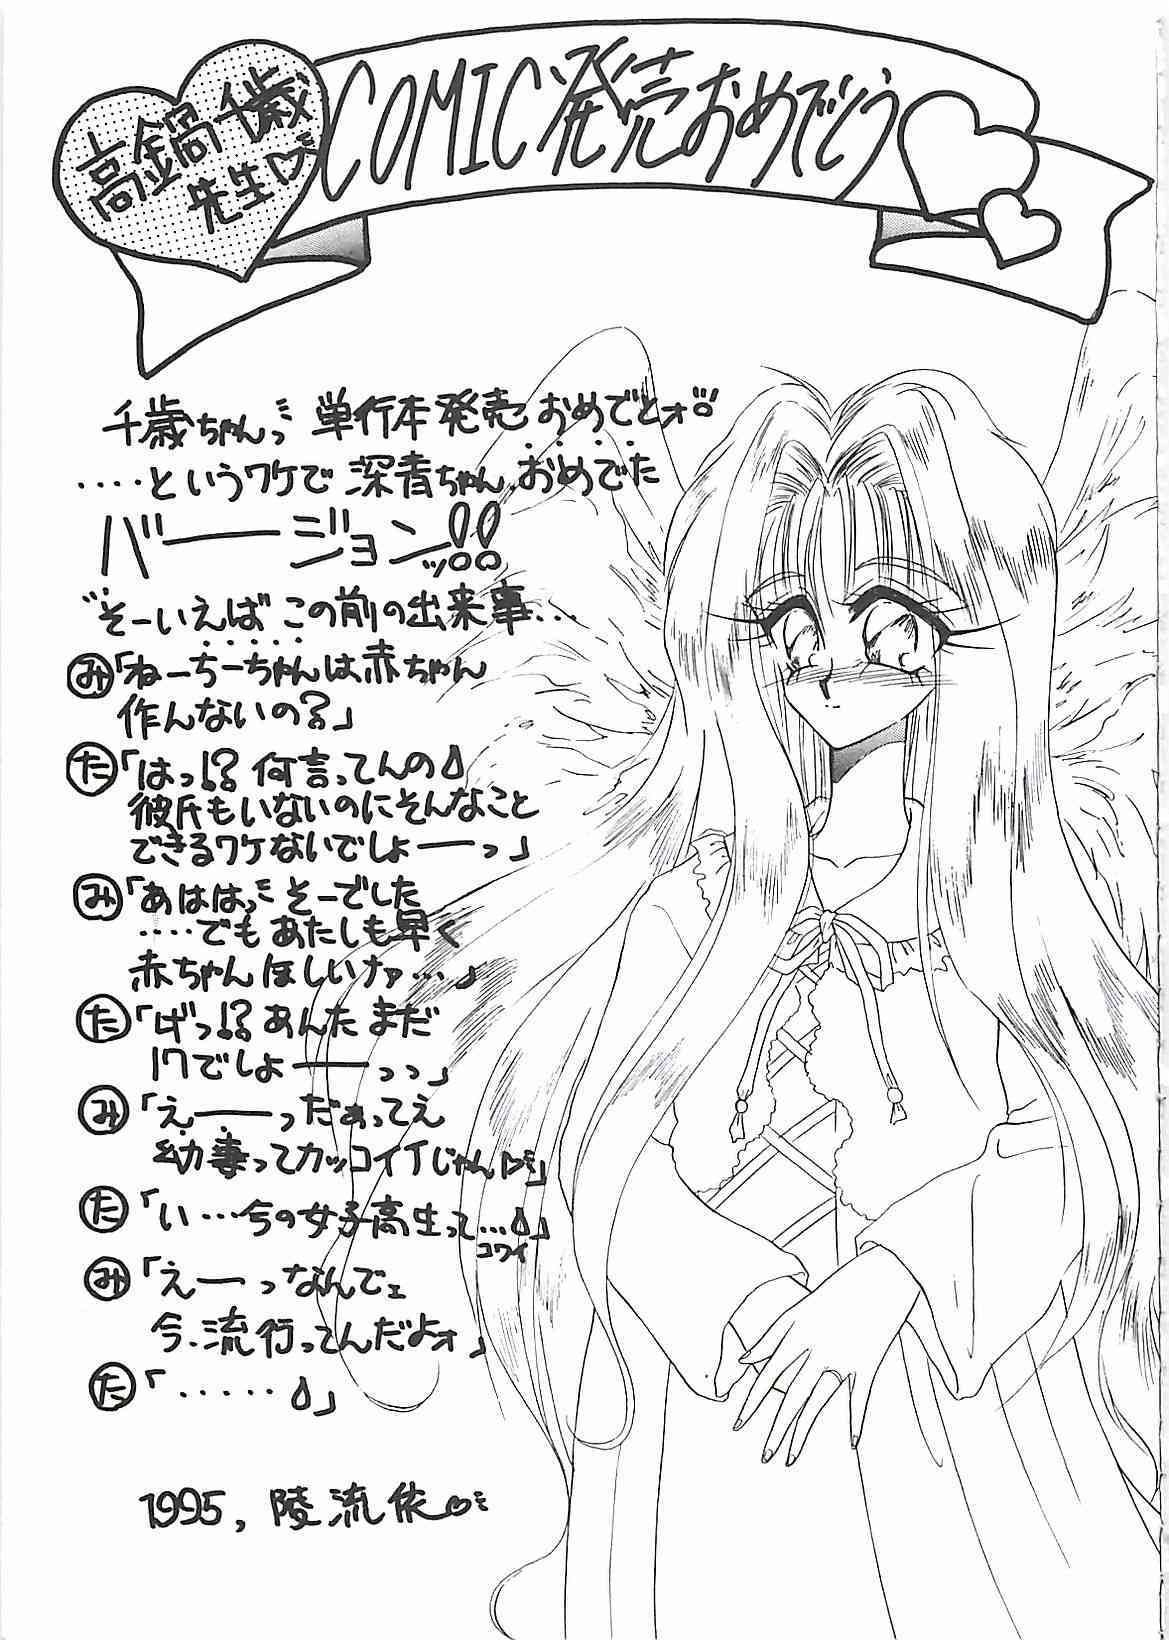 高鍋千歳
先生
COMIC発売おめでとう
千歳ちゃんっ 単行本発売おめでとォ!!
‥‥というワケで深青ちゃんおめでた
バージョンッ!!
そーいえばこの前の出来事…
み「ねーちーちゃんは赤ちゃん
作んないの?」
た「はっ!?何言ってんの
彼氏もいないのにそんなこと
できるワケないでしょーっ」
み「あははっそーでした
‥‥でもあたしも早く
赤ちゃんほしいナァ…」
た「げっ!?あんたまだ
17でしょーっっ」
み「えーっだぁってえ
幼妻ってカッコイイじゃん」
た「い…今の女子高生って…」
コワイ
み「えーっなんでェ
今、流行ってんだよォ」
た「‥‥‥」
1995, 陵流依